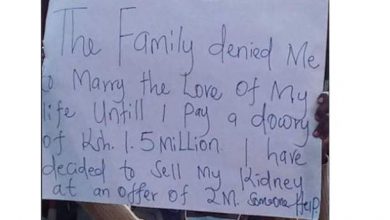 The Family denied Me
to Marry the Love of My
life Untill I Pay a dowry
of Ksh. 1.5 Million I have
decided to Sell My Kidney
at an offer of 2M. Someone Help